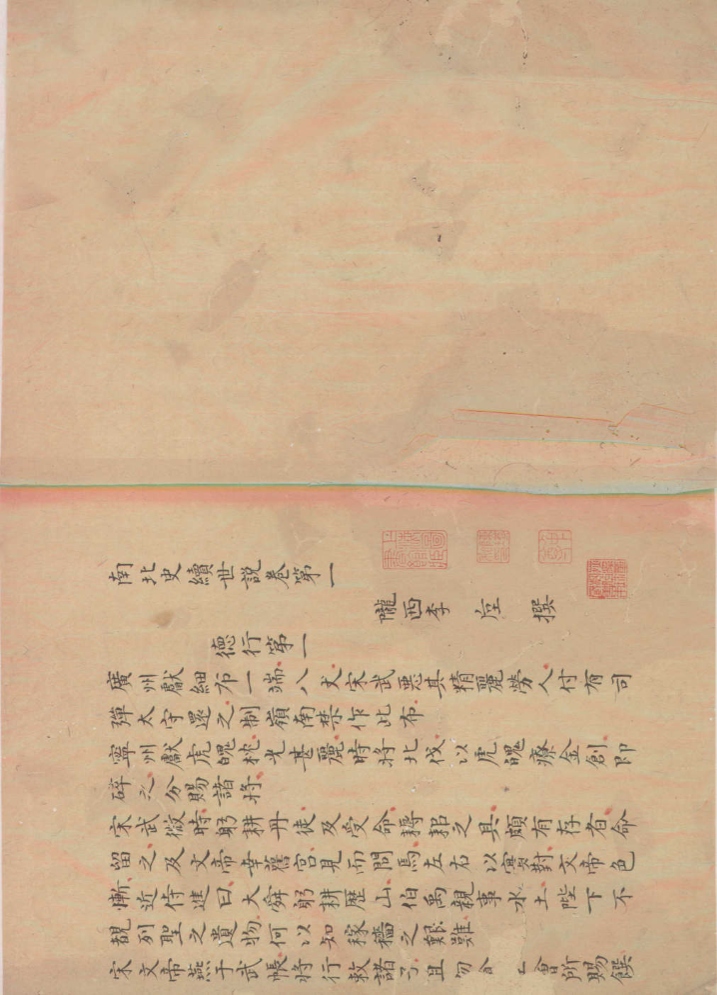 南北史續世說卷第一
隴西李 垕 撰
德行第一
廣州獻細布一端八丈宋武惡其精麗勞人付有司
彈太守還之制嶺南禁作此布
寧州獻虎魄枕光甚麗時將北伐以虎魄療金創即
碎之分賜諸將
宋武微時躬耕丹徒及受命耨耜之具頗有存者命
留之及文帝幸舊宮見而問焉左右以實對文帝色
慚近侍進曰大舜躬耕歷山伯禹親事水土陛下不
覩列聖之遺物何以知稼穡之艱難
宋文帝燕于武帳將行敕諸子且勿食 會所賜饌